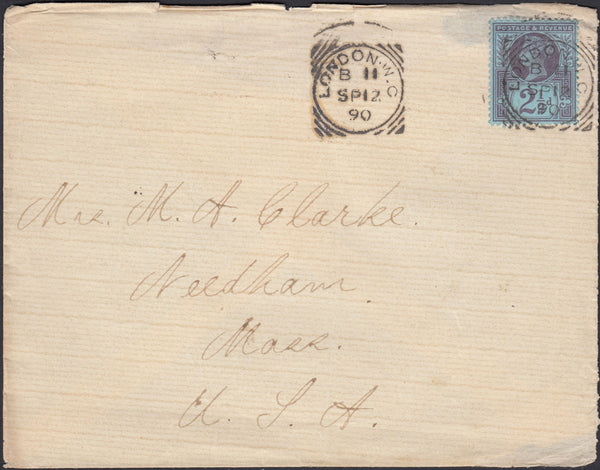 LONDON.W.C
B 11
SP12
90
POSTAGE & REVENUE
LONDON.W.C
B
SP12
90
2½d
Mrs. M. A. Clarke.
Needham
Mass.
U. S. A.